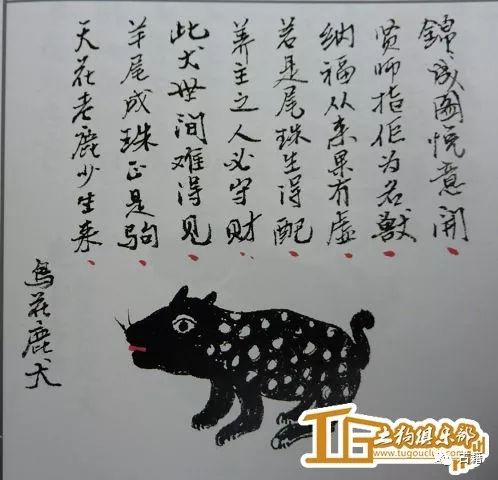 烏花鹿犬
天花老鹿少生来
羊尾成珠正是驹
此犬世间难得见
养主之人必守财
若是尾珠生得配
纳福从来果有虚
贤师指佢为名獸
錦图悦意開
土狗俱乐部
www.tugouclub.com
古籍